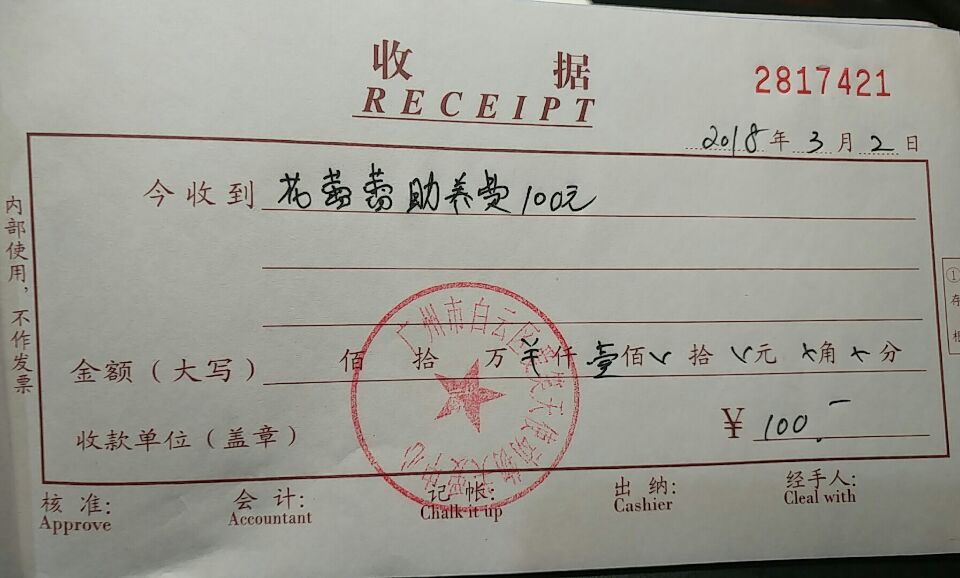 收 据
RECEIPT
2817421
2018 年 3 月 2 日
今收到 花蕾蕾助养费100元
金额（大写） 佰 拾 万 ¥仟 壹佰 拾 元 角 分
收款单位（盖章） ¥ 100.—
核 准: 会 计: 记 帐: 出 纳: 经手人:
Approve Accountant Chalk it up Cashier Cleal with
内部使用，不作发票
①
存
根
广州市白云区
天使